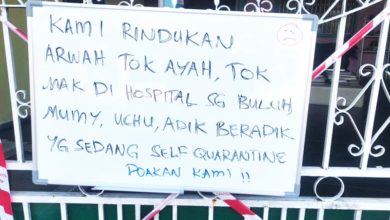 KAMI RINDUKAN
ARWAH TOK AYAH, TOK
MAK DI HOSPITAL SG BULUH,
MUMY, UCHU, ADIK BERADIK
YG SEDANG SELF QUARANTINE
DOAKAN KAMI !!